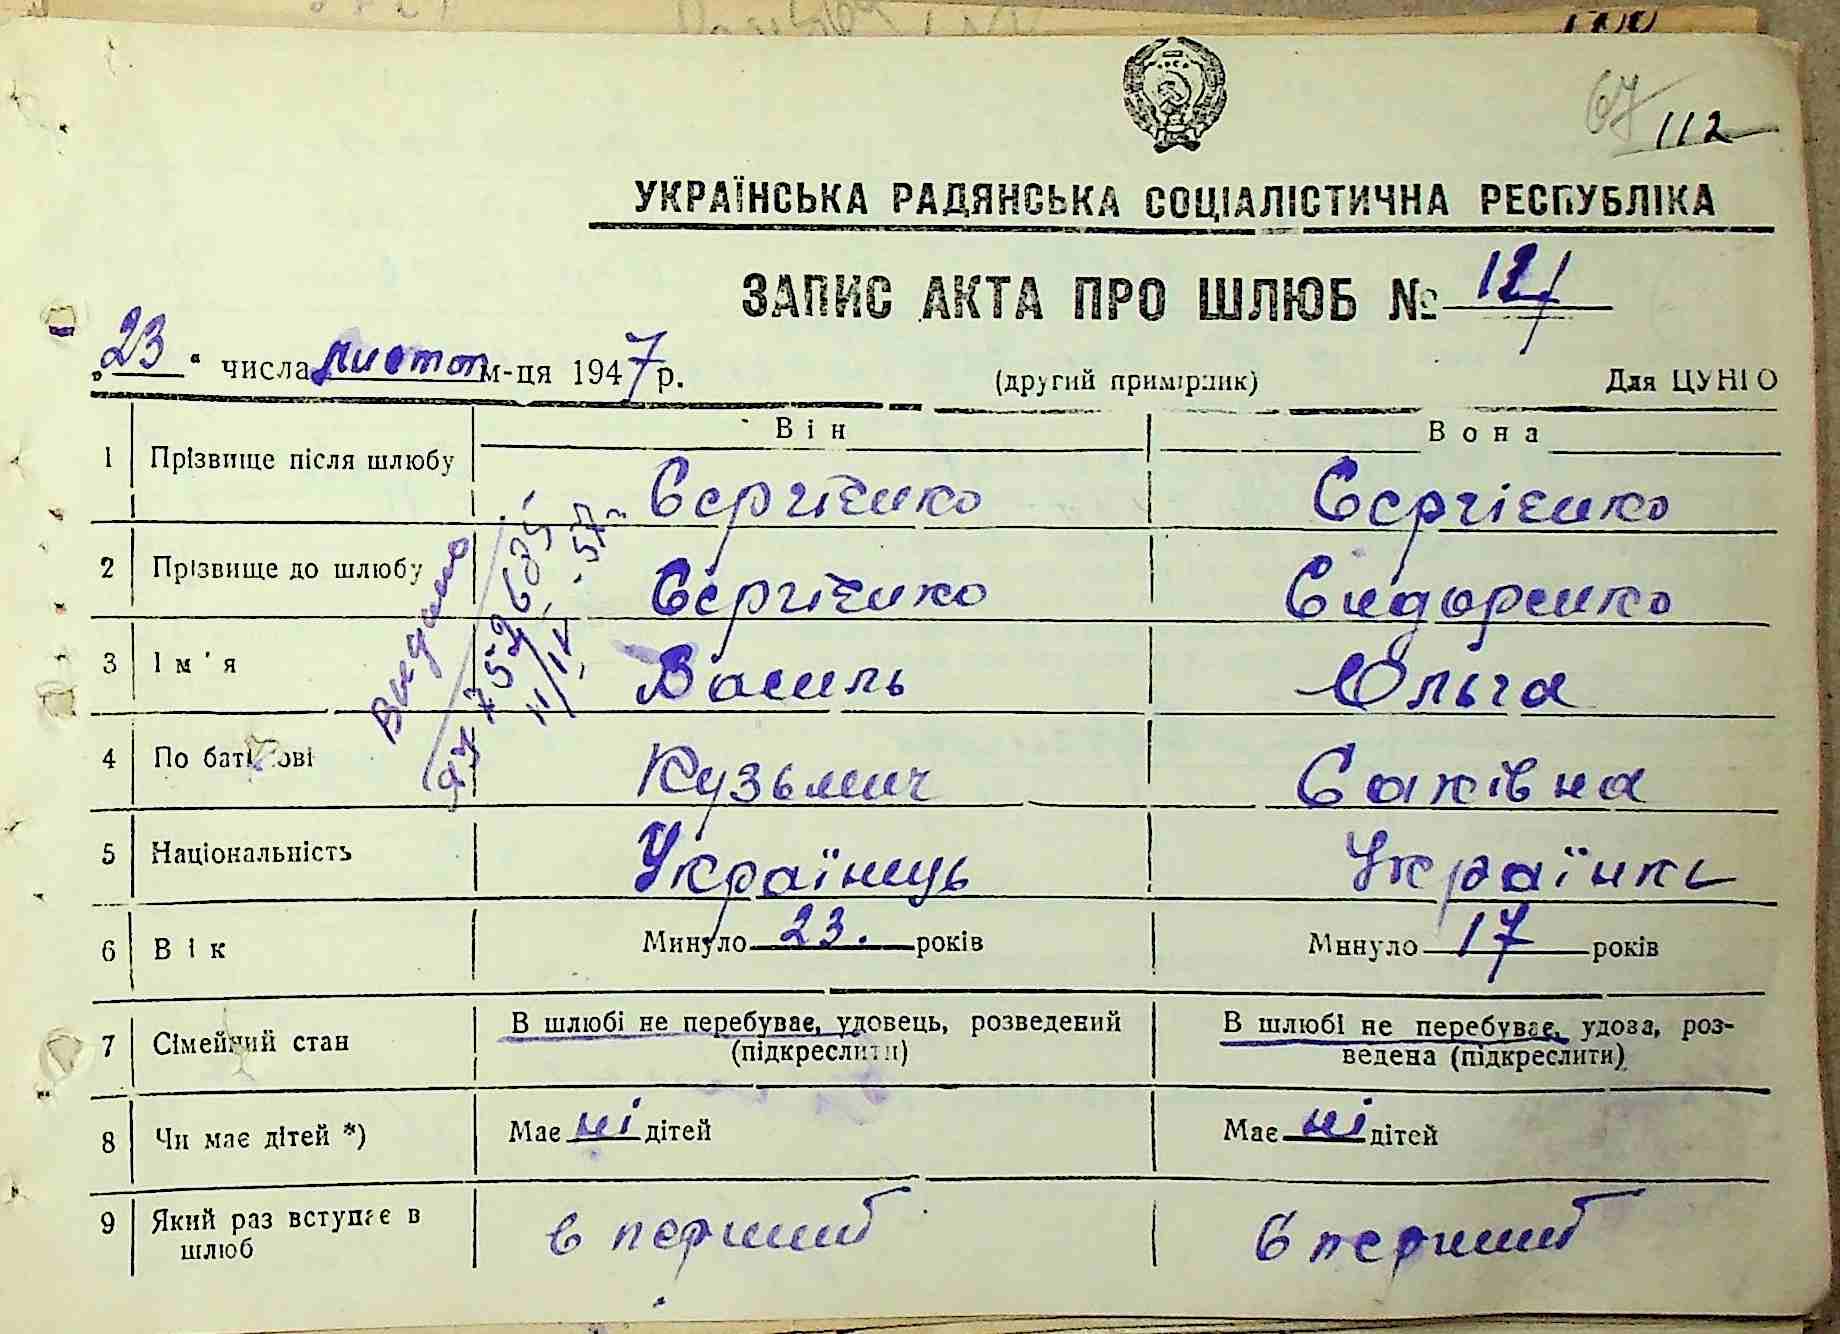 67
112
УКРАЇНСЬКА РАДЯНСЬКА СОЦІАЛІСТИЧНА РЕСПУБЛІКА
ЗАПИС АКТА ПРО ШЛЮБ № 121
„23“ числа листоп м-ця 1947 р. (другий примірник) Для ЦУНГО
Він Вона
1 Прізвище після шлюбу Сєргієнко Сєргієнко
2 Прізвище до шлюбу Сєргієнко Сидоренко
3 Ім'я Василь Ольга
4 По батькові Кузьмич Саківна
5 Національність Українець Українка
6 Вік Минуло 23. років Минуло 17 років
7 Сімейний стан В шлюбі не перебуває, удовець, розведений (підкреслити) В шлюбі не перебуває, удова, розведена (підкреслити)
8 Чи має дітей *) Має ні дітей Має ні дітей
9 Який раз вступає в шлюб в перший в перший
Видано